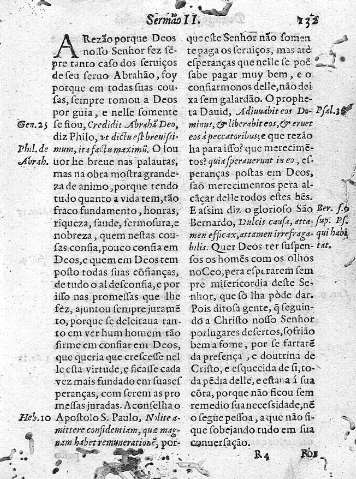 Sermão II.
132
A Rezão porque Deos
nosso Senhor fez sẽpre
tanto caso dos seruiços
de seu seruo Abrahão, foy
porque em todas suas cousas,
sempre tomou a Deos
por guia, e nelle somente
Gen. 25
se fiou, Credidit Abrahã Deo,
diz Philo,
Phil. de
mum, ita factu maximũ. O lou
Abrah.
uor he breue nas palauras,
mas na obra mostra grandeza
de animo, porque tendo
tudo quanto a vida tem, tão
fraco fundamento, honras,
riqueza, saude, fermosura, e
nobreza, quem nestas cousas
confia, pouco confia em
Deos, e quem em Deos tem
posto todas suas cõfianças,
de tudo o al desconfia, e por
isso nas promessas que lhe
fez, ajuntou sempre juramẽto,
porque se deleitaua tanto
em ver hum homem tão
firme em confiar em Deos,
que queria que crescesse nelle
esta virtude, e ficasse cada
vez mais fundado em suas esperanças,
com serem as promessas
juradas. Aconselha o
Heb. 10
Apostolo S. Paulo, Nolite amittere
confidentiam, quæ magnam
habet remunerationẽ, por-
que este Senhor não somente
paga os seruiços, mas atè
esperanças que nelle se poẽ
sabe pagar muy bem, e o
confiarmonos delle, não deixa
sem galardão. O propheta
Dauid, Adiuuabit eos Dominus,
Psal. 36
& liberabit eos, & eruet
eos à peccatoribus; e que rezão
ha para isso? que merecimentos?
quia sperauerunt in eo, esperanças
postas em Deos,
saõ merecimentos pera alcãçar
delle todos estes bẽs.
E assim diz o glorioso São
Ber. s. 6
Bernardo, Dulcis causa, attamen
sup. Ps.
efficax, attamen irrefragabilis.
qui habi
tat.
Quer Deos ter suspensos
os homẽs com os olhos
no Ceo, pera esperarem sempre
misericordia deste Senhor,
que só lha pòde dar.
Pois ditosa gente, q̃ seguindo
a Christo nosso Senhor
por lugares desertos, sofrião
bem a fome, por se fartarẽ
da presença, e doutrina de
Cristo, e esquecida de si, toda
pẽdia delle, e estaua à sua
cõta, porque não ficou sem
remedio sua necessidade, nẽ
o segue pessoa, a que não siga
sobejando tudo em sua
conuersação.
R 4